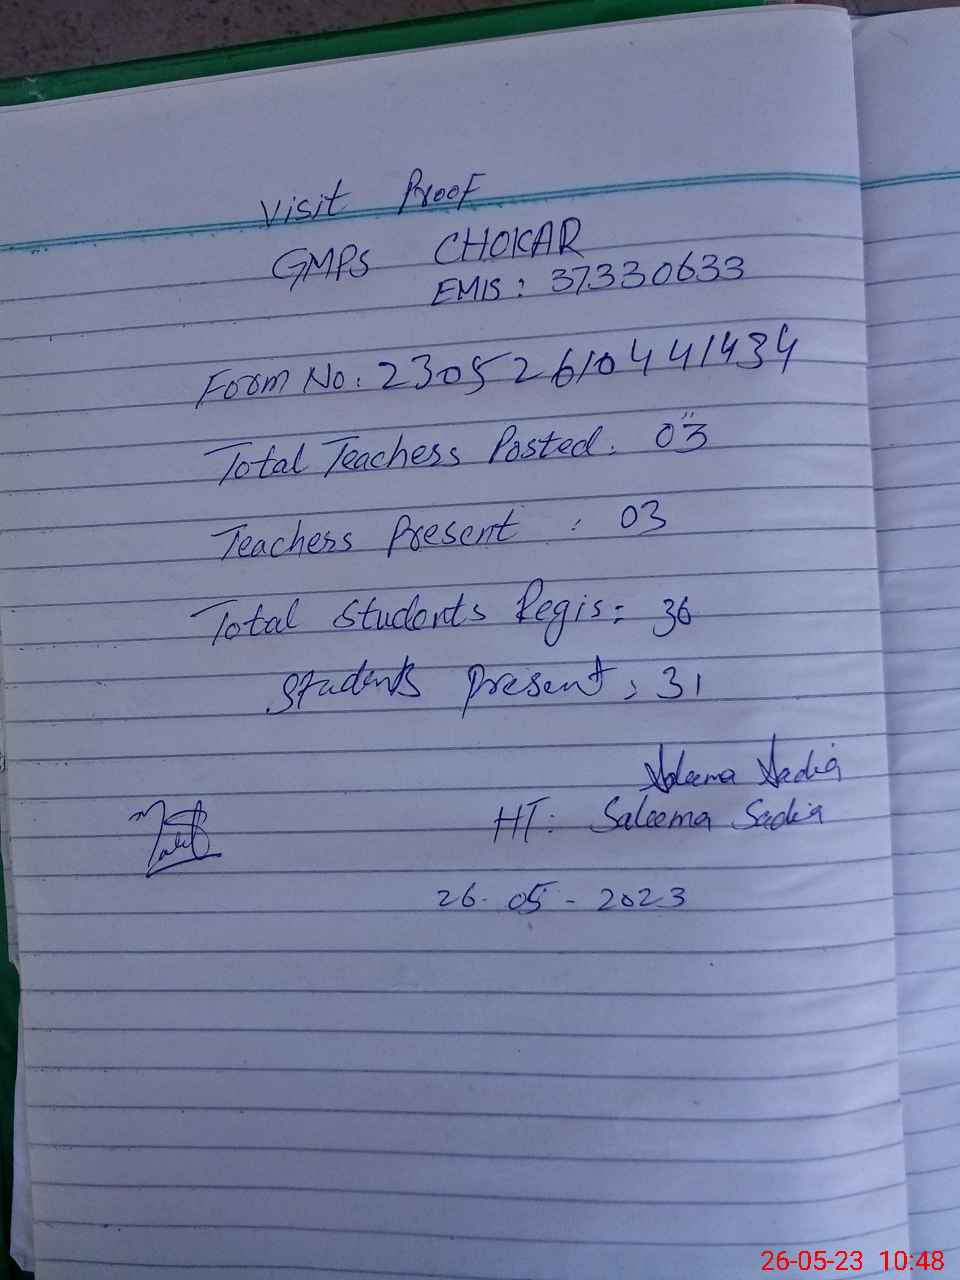 Visit Proof
GMPS CHOKAR
EMIS: 37330633
Form No: 230526104441434
Total Teachers Posted: 03
Teachers Present : 03
Total Students Regis: 36
Students Present: 31
Saleema Sadia
HT: Saleema Sadia
26-05-2023
26-05-23 10:48